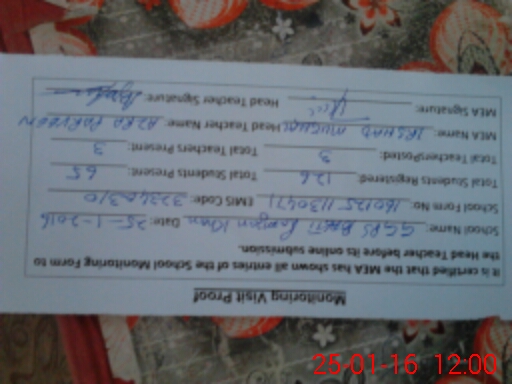 Monitoring Visit Proof
it is certified that the MEA has shown all entries of the School Monitoring Form to
the Head Teacher before its online submission.
School Name: GGPS Basti Ramzan Khan Date: 25-1-2016
School Form No: EMIS Code: 32320310
Total Students Registered: 126 Total Students Present: 65
Total TeachersPosted: 3 Total Teachers Present: 3
MEA Name: IRSHAD MUGHAL Head Teacher Name: AZRA PARVEEN
MEA Signature: Head Teacher Signature:
25-01-16 12:00